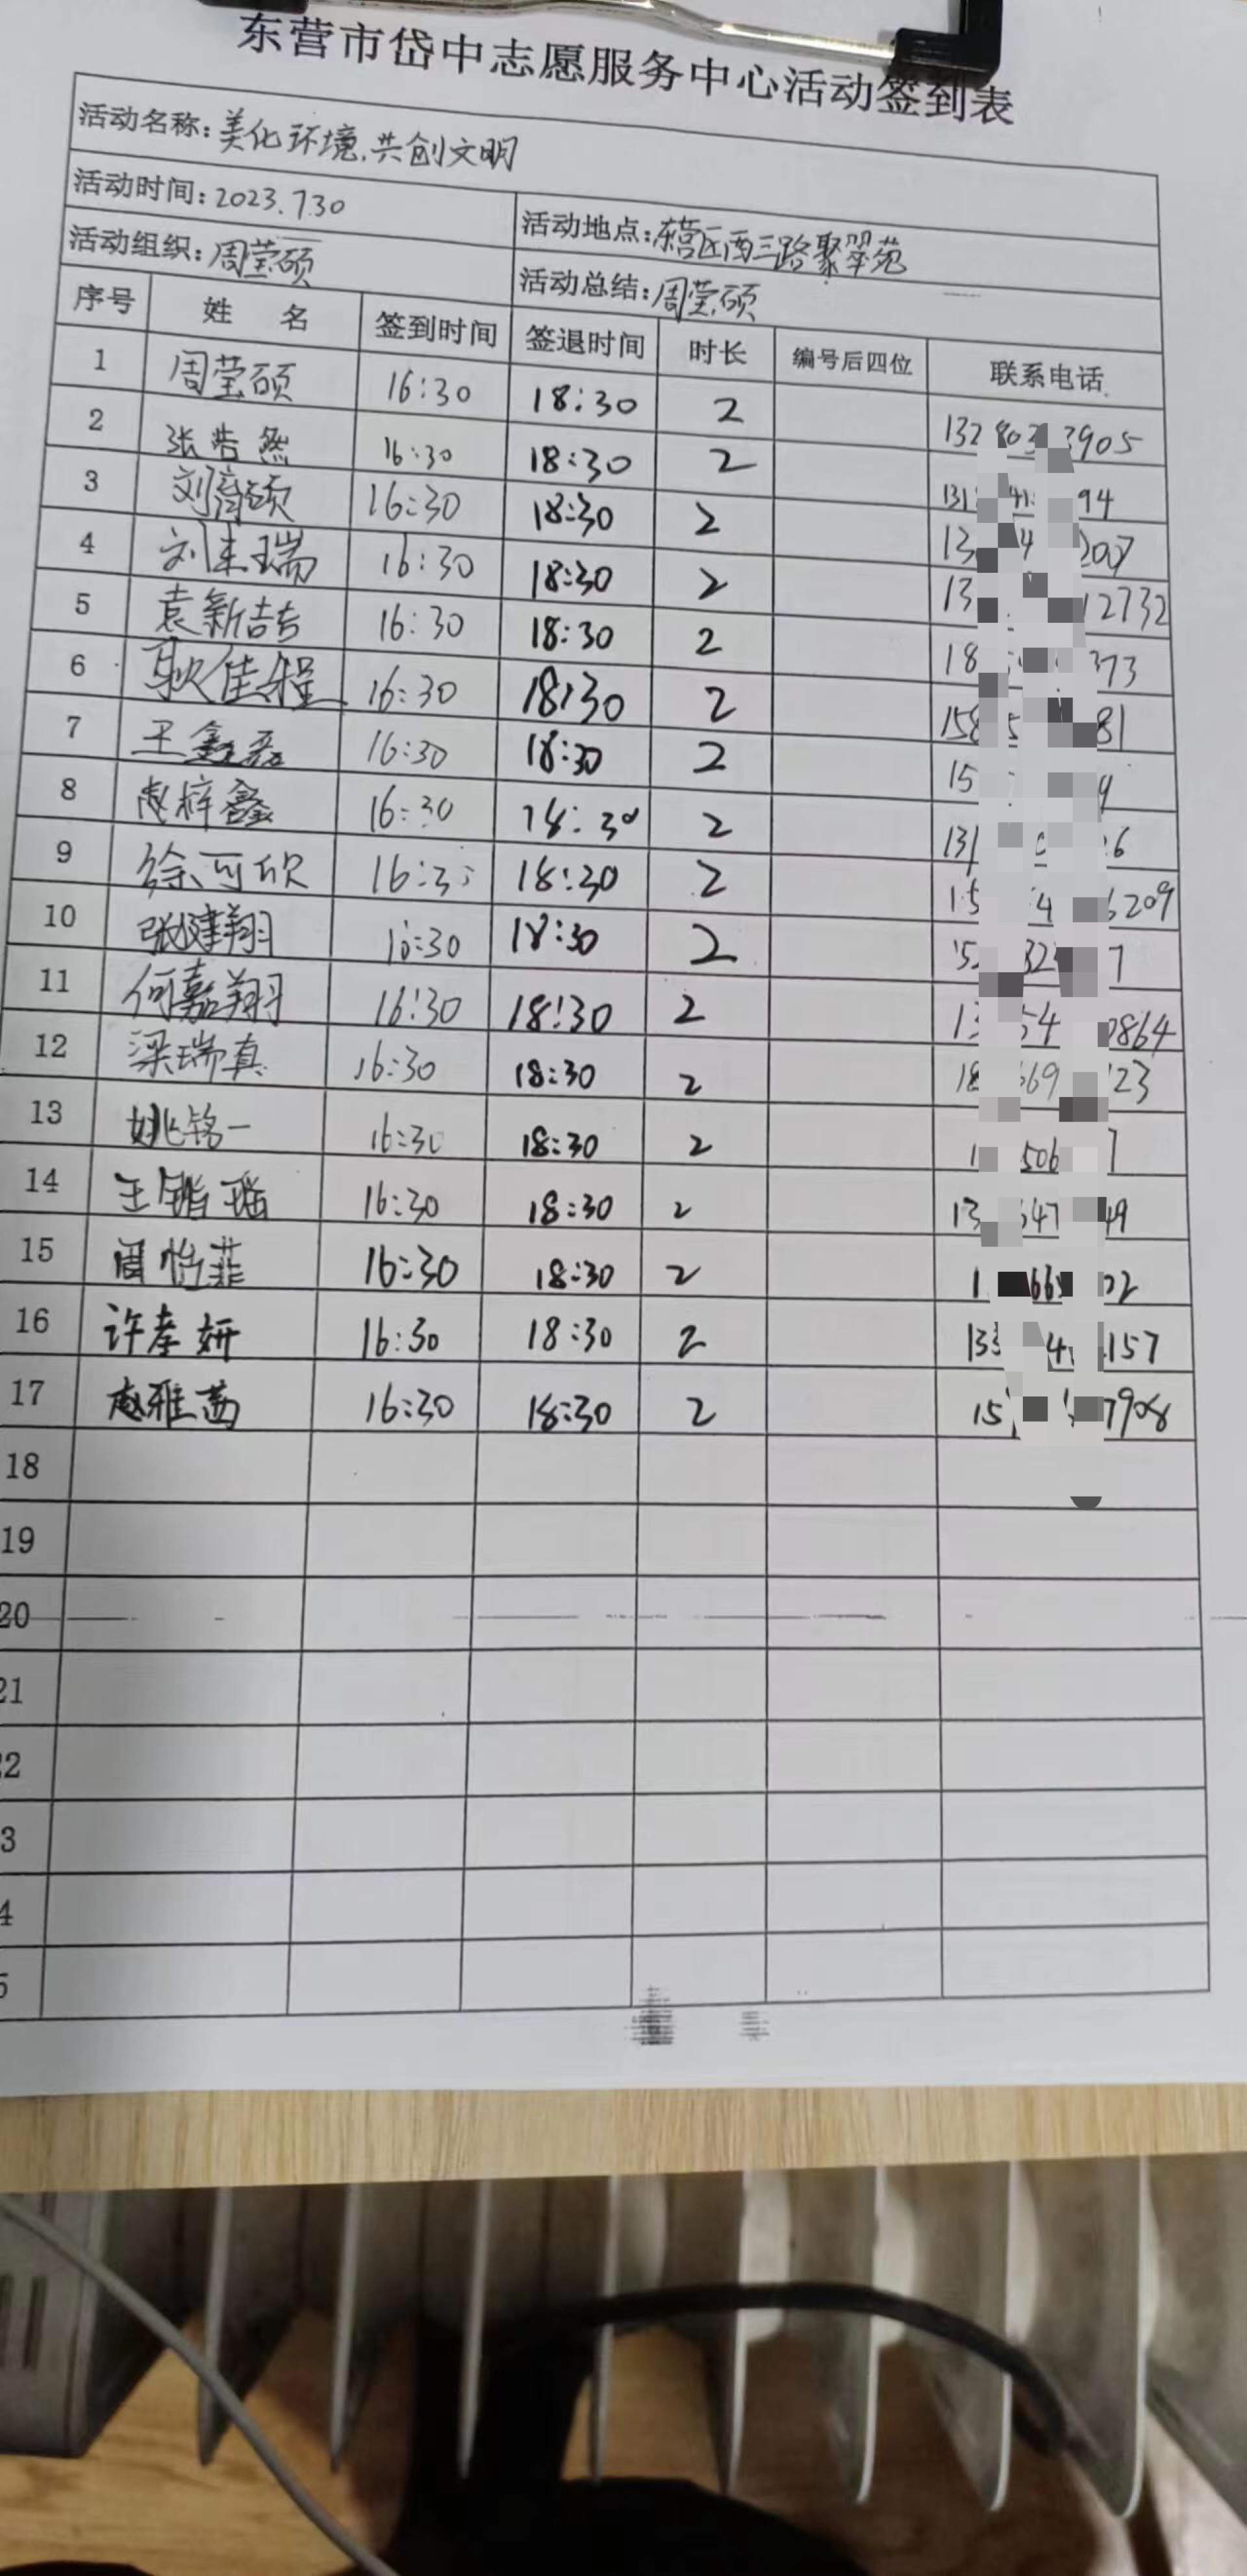 东营市岱中志愿服务中心活动签到表
活动名称:美化环境,共创文明
活动时间:2023.7.30 活动地点:东营区西三路聚翠苑
活动组织:周莹硕 活动总结:周莹硕
序号 姓 名 签到时间 签退时间 时长 编号后四位 联系电话
1 周莹硕 16:30 18:30 2 132 3905
2 张浩然 16:30 18:30 2 131 94
3 刘育硕 16:30 18:30 2 13 4 207
4 刘来瑞 16:30 18:30 2 13 12732
5 袁新喆 16:30 18:30 2 18 373
6 耿佳程 16:30 18:30 2 158 81
7 王鑫磊 16:30 18:30 2 15 9
8 赵梓鑫 16:30 18:30 2 131 6
9 徐可欣 16:3 18:30 2 15 4 6209
10 张建翔 16:30 18:30 2 52 32 7
11 何嘉翔 16:30 18:30 2 13 54 0864
12 梁瑞真 16:30 18:30 2 18 669 123
13 姚铭一 16:30 18:30 2 1 506 7
14 王锴瑶 16:30 18:30 2 13 647 49
15 周怡菲 16:30 18:30 2 1 66 02
16 许孝妍 16:30 18:30 2 133 4 157
17 赵雅茜 16:30 18:30 2 15 7908
18
19
20
21
2
3
4
5